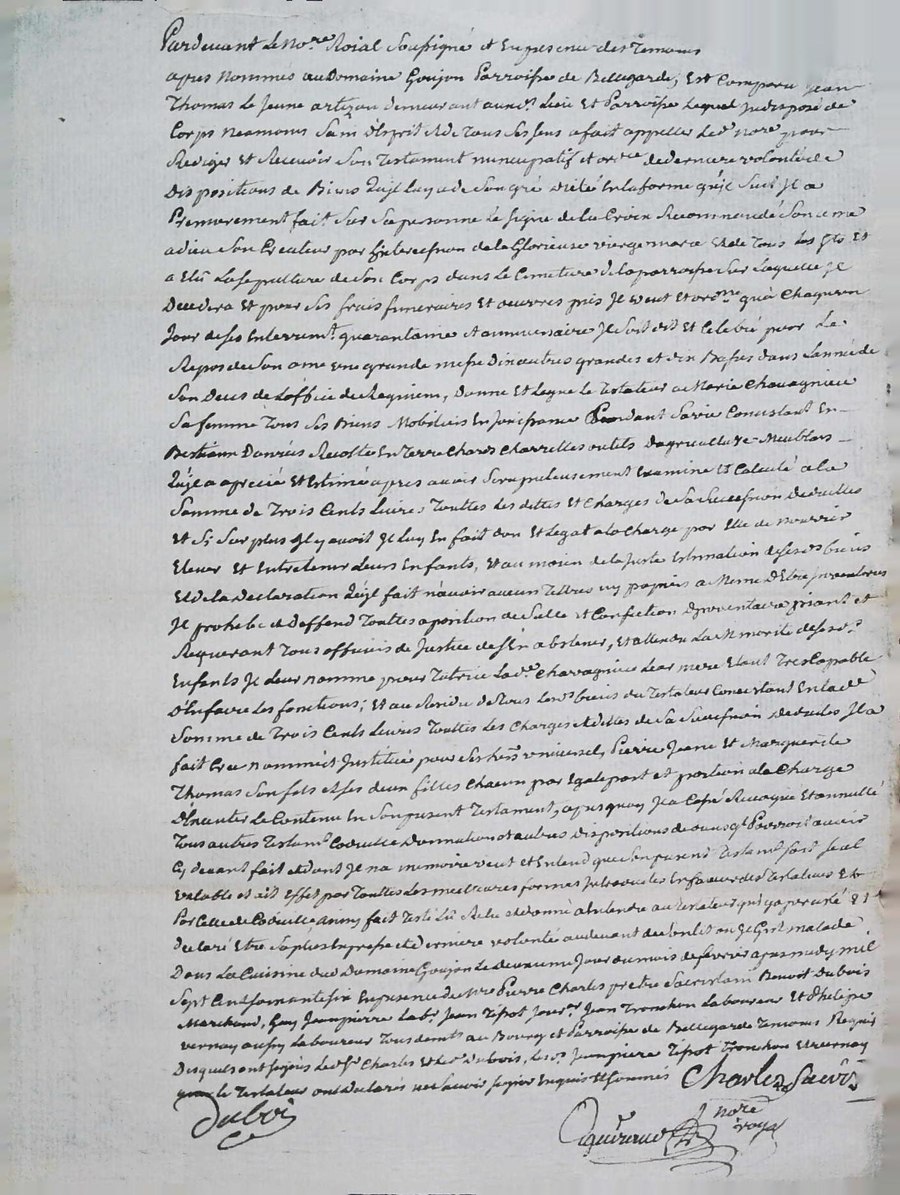 Pardevant le no.re Roial Soussigné et En presence des Temoins
apres Nommés au Domaine Goujon Parroisse de Bellegarde, Est Comparu Jean
Thomas Le Jeune artisan demeurant aud. Lieu Et Parroisse Lequel Indisposé de
Corps Neamoins Sain d'Esprit Et de Tous Ses Sens a fait appeller Led. Nore pour
Rediger Et Recevoir Son Testament nuncupatif et de derniere volonté Et
Dispositions de Biens Qu'il de Son gré dicté En la forme qu'il Suit Il a
Premierement fait Sur Sa personne Le Signe de La Croix Recommandé Son ame
a dieu Son Createur par L'intercession de la Glorieuse vierge marie Et de Tous Les Sts Et
a Elû La Sepulture de Son Corps dans Le Cimetiere de la parroisse Sur Laquelle Il
Decedera Et pour Ses frais funeraires Et oeuvres pies Il veut Et ordne qu'à Chaqun
Jour de Ses Enterremt. quarantaine et anniversaire Il Soit dit Et Celebré pour Le
Repos de Son ame une grande messe dix autres grandes et dix Basses dans L'année de
Son Deces de L'office de Requiem, Donne Et Legue Le Testateur a Marie Chavagnieu
Sa femme Tous Ses Biens Mobiliers En Jouissance Pendant Sa vie Consistant En
Bestiaux Danrées Recolte En Terre Chars Charrettes outils dagriculture Meubles
Qu'il a aprecié Et Estimé apres avoir Scrupuleusement Examiné Et Calculé a la
Somme de Trois Cents Livres Touttes Les dettes Et Charges de Sa Succession deduittes
Et Si Surplus Il y avoit Il Luy En fait don Et Legat a la Charge par Elle de Nourrir
Elever Et Entretenir Leurs Enfants, Et au moien de la Juste Estimation de Ses d. biens
Et de La Declaration Qu'il fait n'avoir aucun Tittres ny papiers a Meme D'Etre Inventoriés
Il prohibe et deffend Touttes aposition de Sellé et Confection D'inventaire priant Et
Requerant Tous officiers de Justice de S'En abstenir, Et attendu La Minorité de Ses d.
Enfants Il Leur nomme pour Tutrice Lad. Chavagnieu Leur mere Etant Tres Capable
D'En faire Les fonctions; Et au Residu de Tous Les d. biens du Testateur Consistant En lad.
Somme de Trois Cents Livres Touttes Les Charges Et dettes de Sa Succession deduites Il a
fait Cree nommé Et Institué pour Ses hers universels, Pierre Jeane Et Marguerite
Thomas Son fils et Ses deux filles Chacun par Egale part et portion a la Charge
D'Executer Le Contenu En Son present Testament, apres quoy Il a Cassé Revoqué Et annullé
Tous autres Testamt. Codicille Donnation Et autres Dispositions de Pourroit avoir
Cy devant fait et dont Il na memoire veut et Entend que Son present Testamt. Soit Seul
valable et ait Effet par Touttes Les meilleures formes Introduites En faveur des Testateurs Et
Par Celle de Codicille, ainsy fait Testé Lû Relû et donné a Entendre au Testateur qui y a perseveré Et
Declaré Etre Sa plus Expresse Et derniere volonté au devant de Son Lit ou Il Git malade
Dans La Cuisine dud. Domaine Goujon Le deuxieme Jour du mois de fevrier apres midy mil
Sept Cent Soixante Six En presence de Mre Pierre Charles pretre Sacristain Benoit Dubois
Marchand, Guy Jeanpierre Labr. Jean Tissot Jour. Jean Tronchon Laboureur Et Philipe
vernay aussy Laboureur Tous demts. au Bourg et Parroisse de Bellegarde Temoins Requis
Desquels ont Signés Led. Sr Charles Et Led. Dubois, Lesd. Jeanpierre Tissot Tronchon Et vernay
que le Testateur ont Declarés ne Sçavoir Signer Enquis Et Sommés Charles Sacrin
Dubois
nore royal